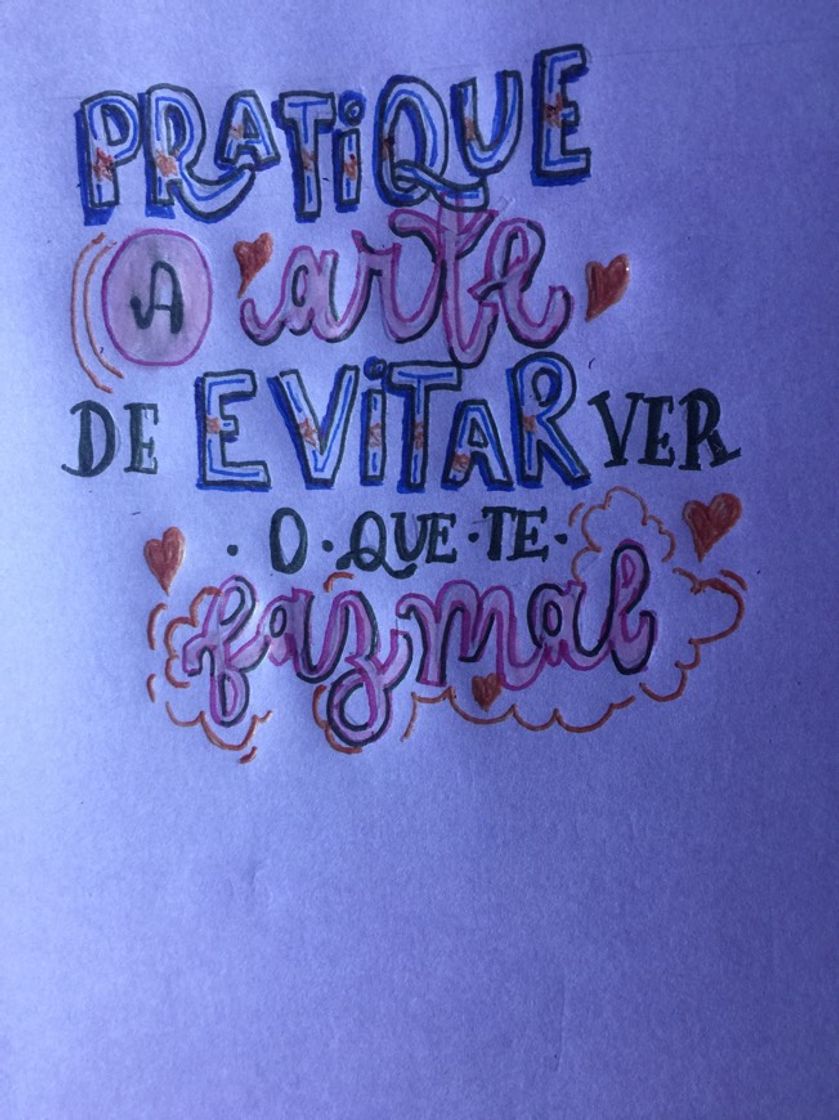 PRATIQUE
A arte
DE EVITAR VER
· O · QUE · TE ·
faz mal